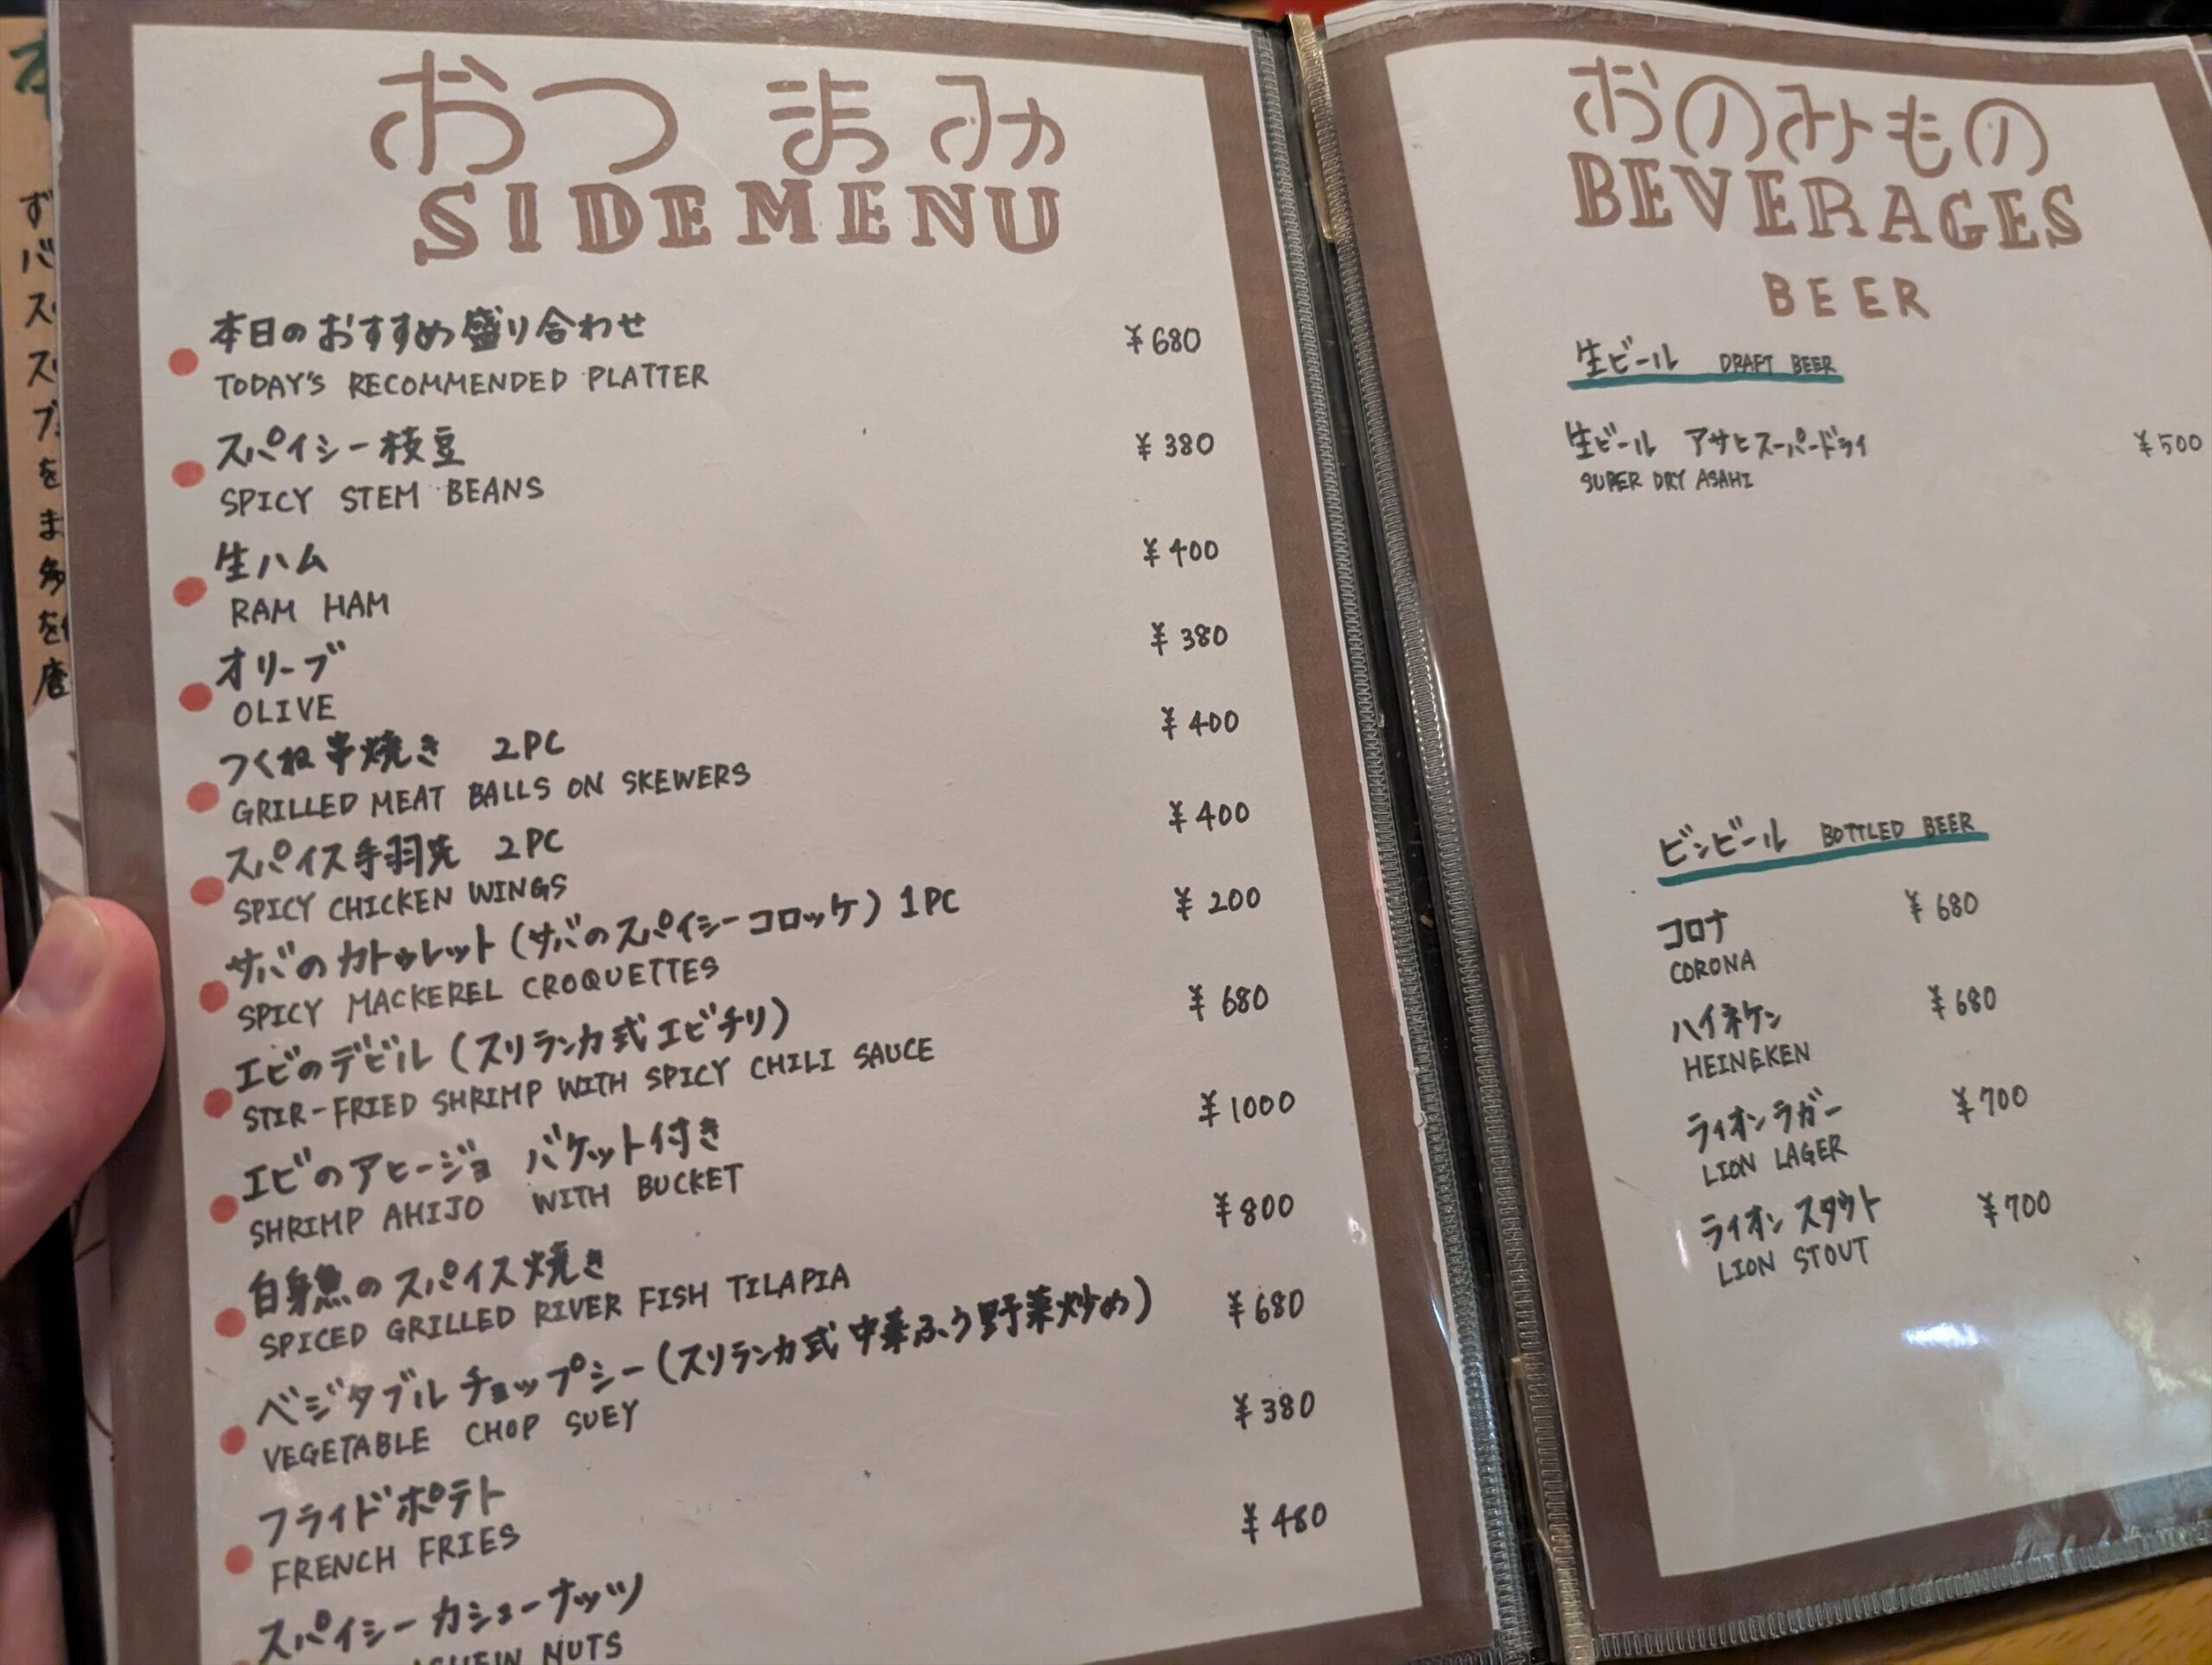 おつまみ
SIDE MENU
本日のおすすめ盛り合わせ ¥680
TODAY'S RECOMMENDED PLATTER
スパイシー枝豆 ¥380
SPICY STEM BEANS
生ハム ¥400
RAM HAM
オリーブ ¥380
OLIVE
つくね串焼き 2PC ¥400
GRILLED MEAT BALLS ON SKEWERS
スパイス手羽先 2PC ¥400
SPICY CHICKEN WINGS
サバのカトゥレット(サバのスパイシーコロッケ) 1PC ¥200
SPICY MACKEREL CROQUETTES
エビのデビル(スリランカ式エビチリ) ¥680
STIR-FRIED SHRIMP WITH SPICY CHILI SAUCE
エビのアヒージョ バケット付き ¥1000
SHRIMP AHIJO WITH BUCKET
白身魚のスパイス焼き ¥800
SPICED GRILLED RIVER FISH TILAPIA
ベジタブルチョップシー(スリランカ式中華ふう野菜炒め) ¥680
VEGETABLE CHOP SUEY
フライドポテト ¥380
FRENCH FRIES
スパイシーカシューナッツ ¥480
NUTS
おのみもの
BEVERAGES
BEER
生ビール DRAFT BEER
生ビール アサヒスーパードライ ¥500
SUPER DRY ASAHI
ビンビール BOTTLED BEER
コロナ ¥680
CORONA
ハイネケン ¥680
HEINEKEN
ライオンラガー ¥700
LION LAGER
ライオンスタウト ¥700
LION STOUT